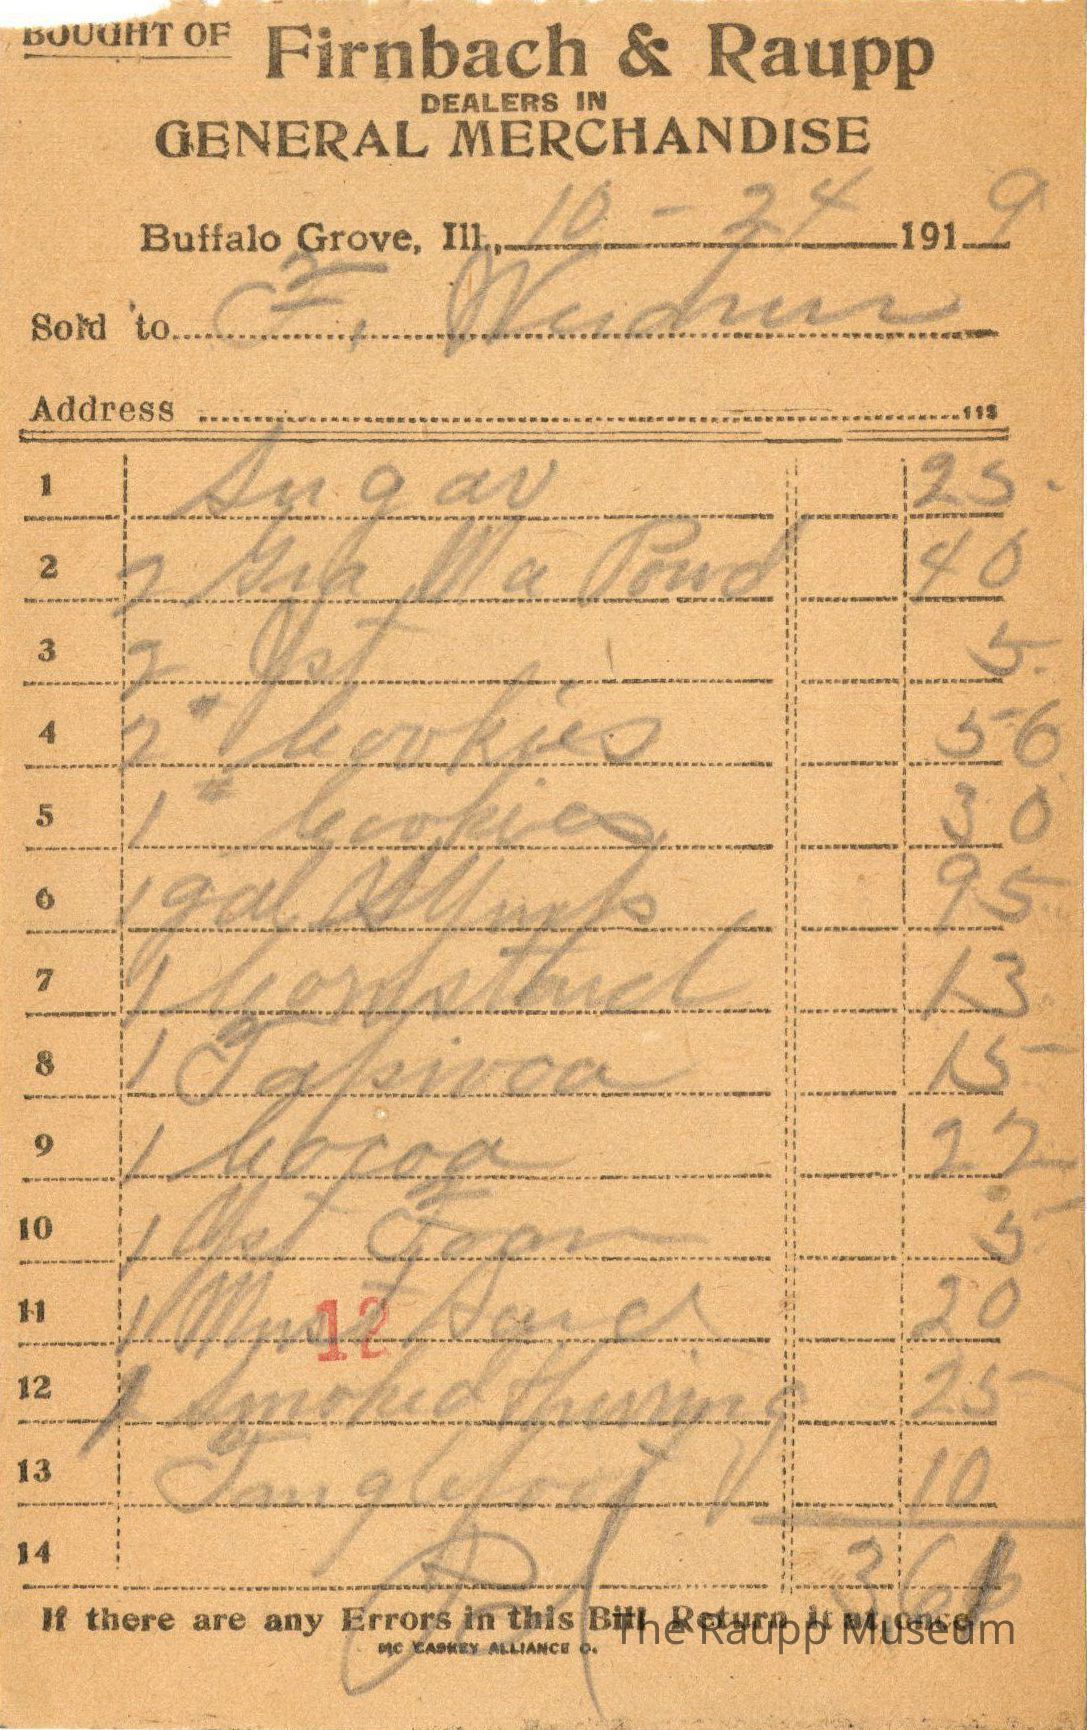 BOUGHT OF Firnbach & Raupp
DEALERS IN
GENERAL MERCHANDISE
Buffalo Grove, Ill., 10 - 24 1919
Sold to F.
Address 113
1 Sugar 25
2 2 Gra Ma Powd 40
3 2 Yst 5
4 2 # Cookies 56
5 1 # Cookies 30
6 1 gal Syrup 95
7 1 Cornstarch 13
8 1 Tapioca 15
9 1 Cocoa 27
10 1 Yst Foam 5
11 1 Must Sard 20
12
12 1 Smoked Herring 25
13 Tanglefoot 10
14 Pd 3 66
If there are any Errors in this Bill Return it at once
MC CASKEY ALLIANCE O.
The Raupp Museum